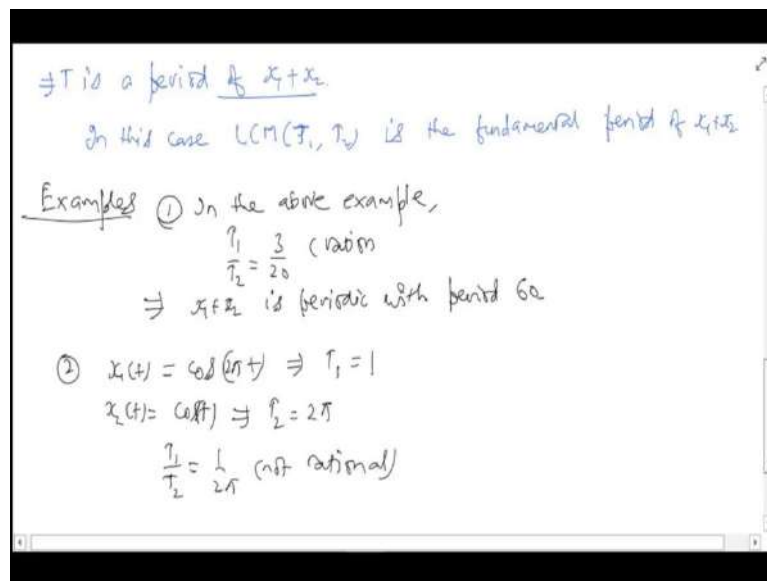 ⇒ T is a period of x₁+x₂.
In this case LCM(T₁, T₂) is the fundamental period of x₁+x₂
Examples ① In the above example,
T₁/T₂ = 3/20 (ration
⇒ x₁+x₂ is periodic with period 60
② x₁(t) = cos(2πt) ⇒ T₁ = 1
x₂(t) = cos(t) ⇒ T₂ = 2π
T₁/T₂ = 1/2π (not rational)